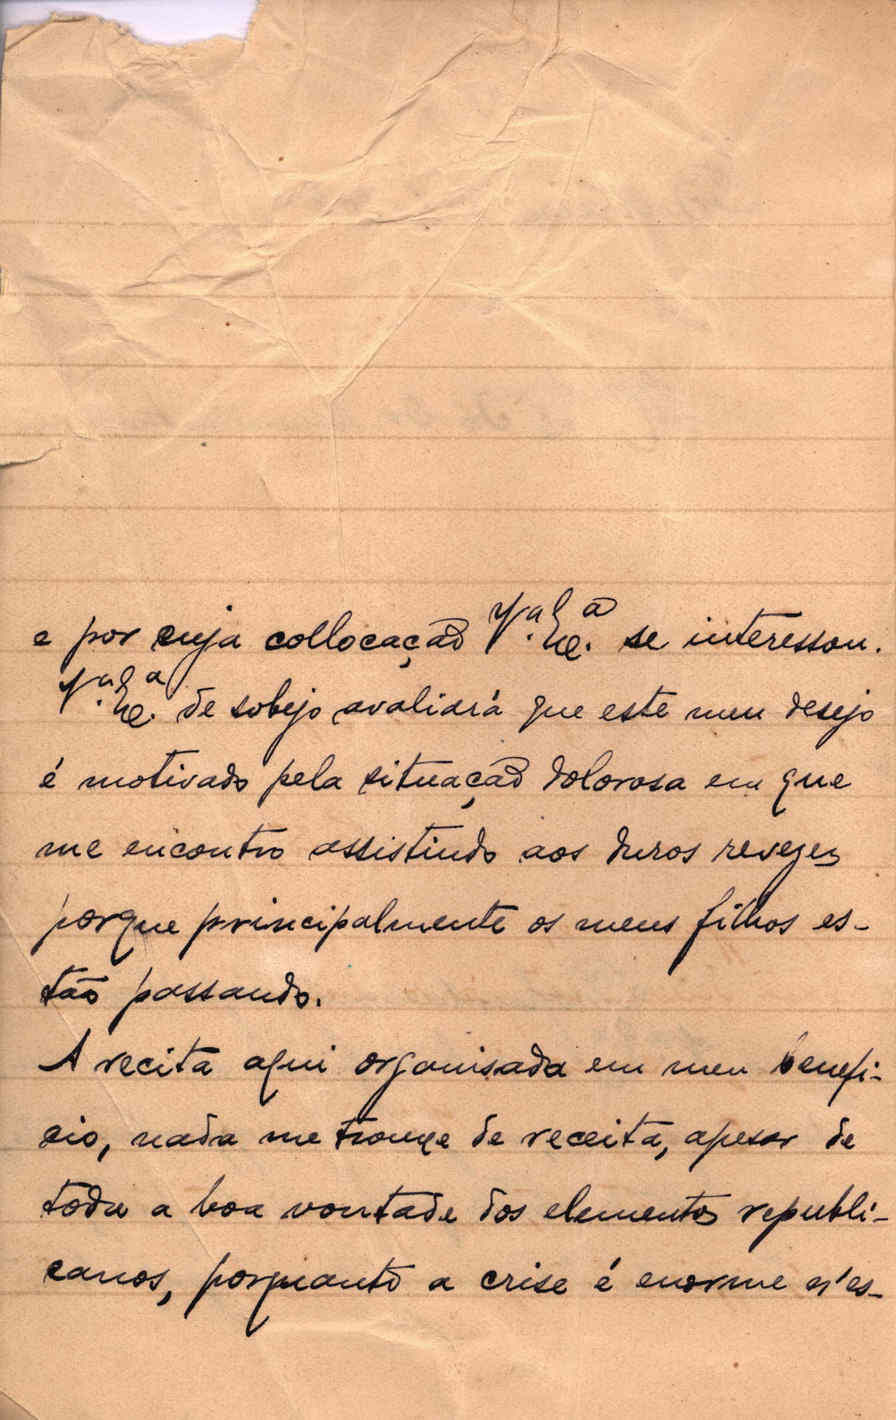 e por cuja collocação V.ª Ex.ª se interessou.
V.ª Ex.ª de sobejo avaliará que este meu desejo
é motivado pela situação dolorosa em que
me encontro assistindo aos duros revezes
porque principalmente os meus filhos es-
tão passando.
A recita aqui organisada em meu benefi-
cio, nada me trouxe de receita, apesar de
toda a boa vontade dos elementos republi-
canos, porquanto a crise é enorme n'es-